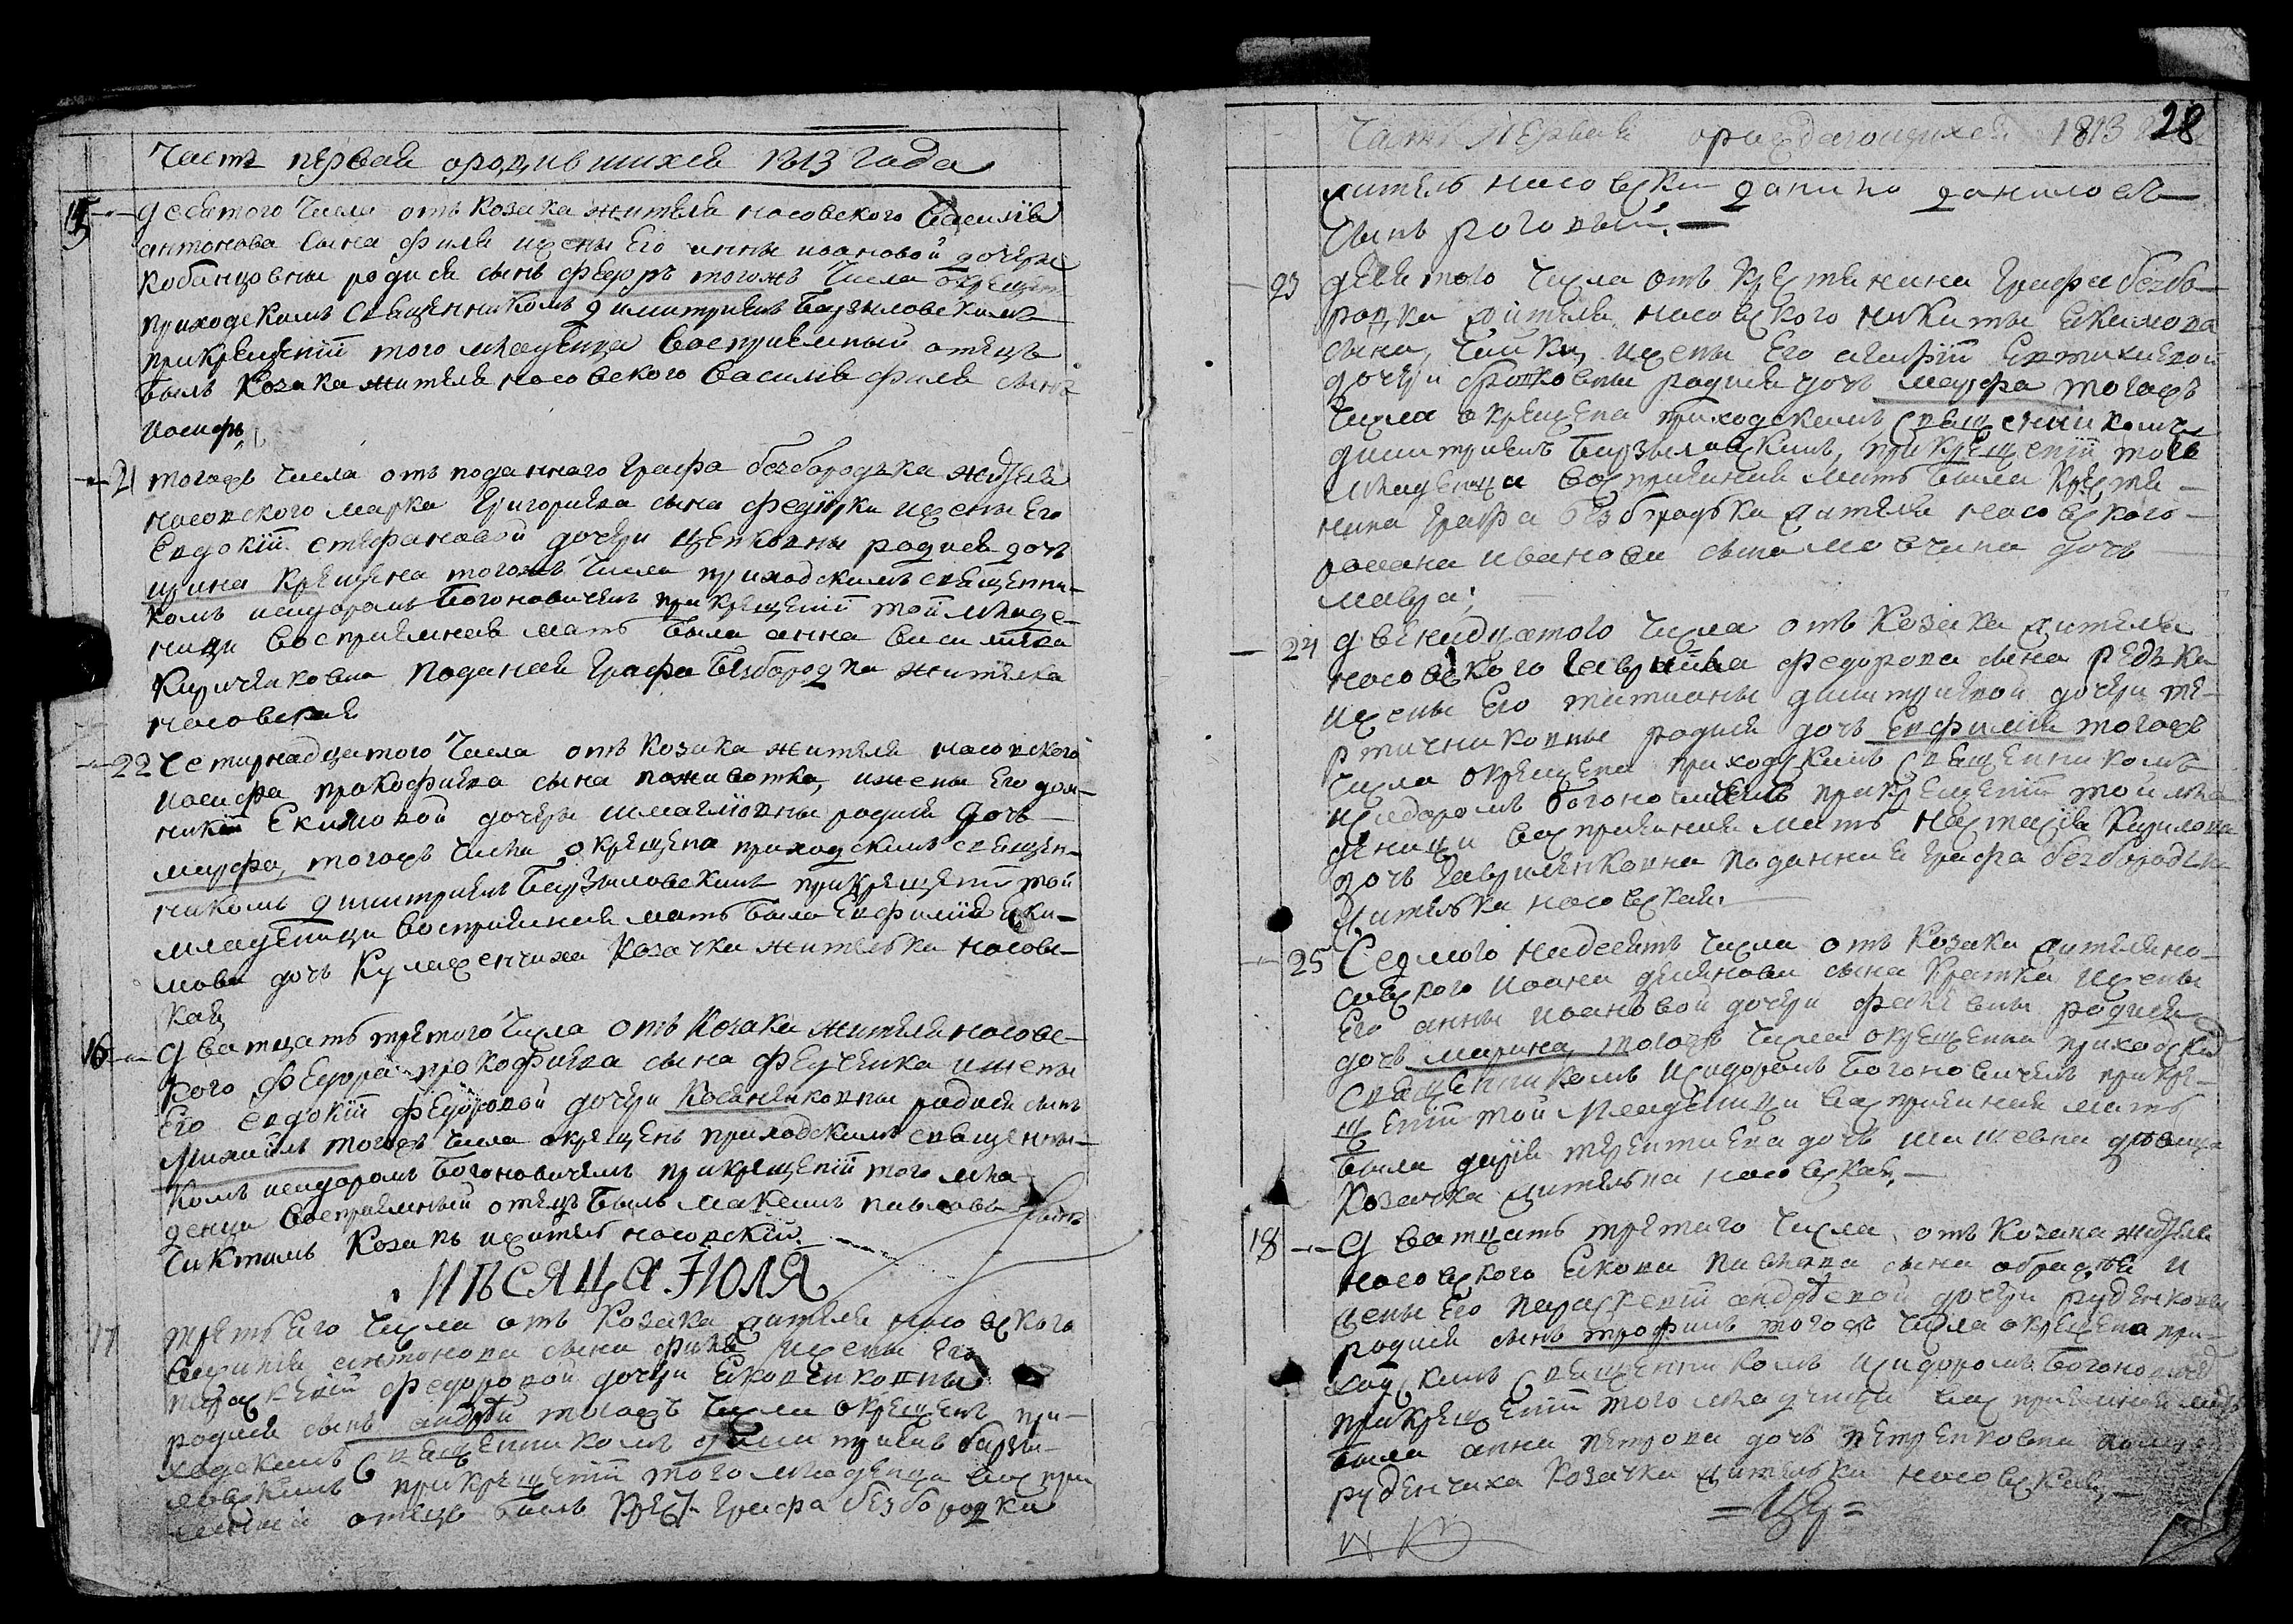 Часть первая ородившихся 1813 Года
15 девятого Числа отъ козака жителя носовского Василія
антонова сына Филя ижены Его анны иоановой дочери
кобанцовны родися сынъ федоръ тогожъ числа окрещенъ
приходскимъ Священникомъ димитриемъ Барзиловскимъ
прикрещеніи того младенца Восприемный отецъ
былъ козака жителя носовского Василия Филя сынъ
иосифъ
21 тогожъ числа отъ поданного Графа безбородъка жителя
носовского марка Григориева сына федірки ижены Его
Евдокіи стефановой дочери родися дочь
ирина крещена тогожъ числа приходскимъ священни-
комъ исидоромъ Богоновичемъ при крещеніи той младе-
ници восприемная мать была анна васильева
Кириченковна поданная Графа Безбородка жителка
носовская
22 Четирнадцатого числа отъ козака жителя носовского
иосифа прокофиева сына поживотка, ижены Его дом-
никіи Екимовой дочери шмаглювны родися дочь
марфа, тогожъ числа окрещена приходскимъ священ-
никомъ димитриемъ Барзиловскимъ прикрещеніи той
младеници восприемная мать была Евфимия Яки-
мова дочь Кулаженчиха Козачка жителька носовс-
кая
16 Дватцать третого числа отъ козака жителя носовс-
кого Федора прокофиева сына Федченка ижены
Его евдокіи Федоровой дочери родися сынъ
михаилъ тогожъ числа окрещенъ приходскимъ священни-
комъ исидоромъ Богоновичемъ прикрещеніи того мла-
денца восприемный отецъ былъ максимъ павловъ сынъ
Козакъ ижитель носовскій.
МѢСЯЦА ІЮЛЯ
17 третьего числа отъ Козака жителя носовского
василия антонова сына филя ижены Его
параскевіи федоровой дочери Яковенковны
родися сынъ андрей тогожъ числа окрещенъ при-
ходскимъ священникомъ димитриемъ барзи-
ловскимъ прикрещеніи того младенца воспри
емний отецъ былъ крест. Графа безбородка
28
Часть Первая ораждающихся 1813
житель носовский данило даниловъ
сынъ роговый.
23 девятого числа отъ крестянина Графа безбо-
родка жителя носовского никиты екимова
сына чайки, ижены Его агафіи Евтихиевой
дочери родися дочь марфа тогожъ
числа окрещена приходскимъ священникомъ
димитриемъ Барзиловскимъ, прикрещеніи того
младенца восприемная мать была крестя-
нина Графа безбородька жителя носовского
романа иванова сына мовчана дочь
мавра;
24 двенадцятого числа отъ козака жителя
носовского Гавриила федорова сына редька
ижены Его татианы димитриевой дочери те-
ртичниковны родися дочь Евфимия тогожъ
числа окрещена приходскимъ священникомъ
исидоромъ богоновичемъ прикрещеніи той мла
деници восприемная мать настасия Кирилова
дочь Гавриленковна поданная Графа безбородька
жителька носовская.
25 Седмого надесять числа отъ козака жителя но-
совского иоана демянова сына кратка, ижены
Его анны иоановой дочери родися
дочь марина, тогожъ числа окрещенна приходским
священникомъ исидоромъ Богоновичемъ прикре-
щеніи той младеници восприемная мать
была дарія терентиева дочь девица
козачка жителька носовская.
18 Дватцать третаго числа, отъ козака жителя
носовского Якова павлова сына и
жены Его параскевіи андреевой дочери руденковны
родися сынъ трофимъ тогожъ числа окрещенъ при-
ходскимъ священникомъ исидоромъ Богоновичем
прикрещеніи того младенца восприемная мать
была анна петрова дочь петренковна
руденчиха козачка жителька носовская,